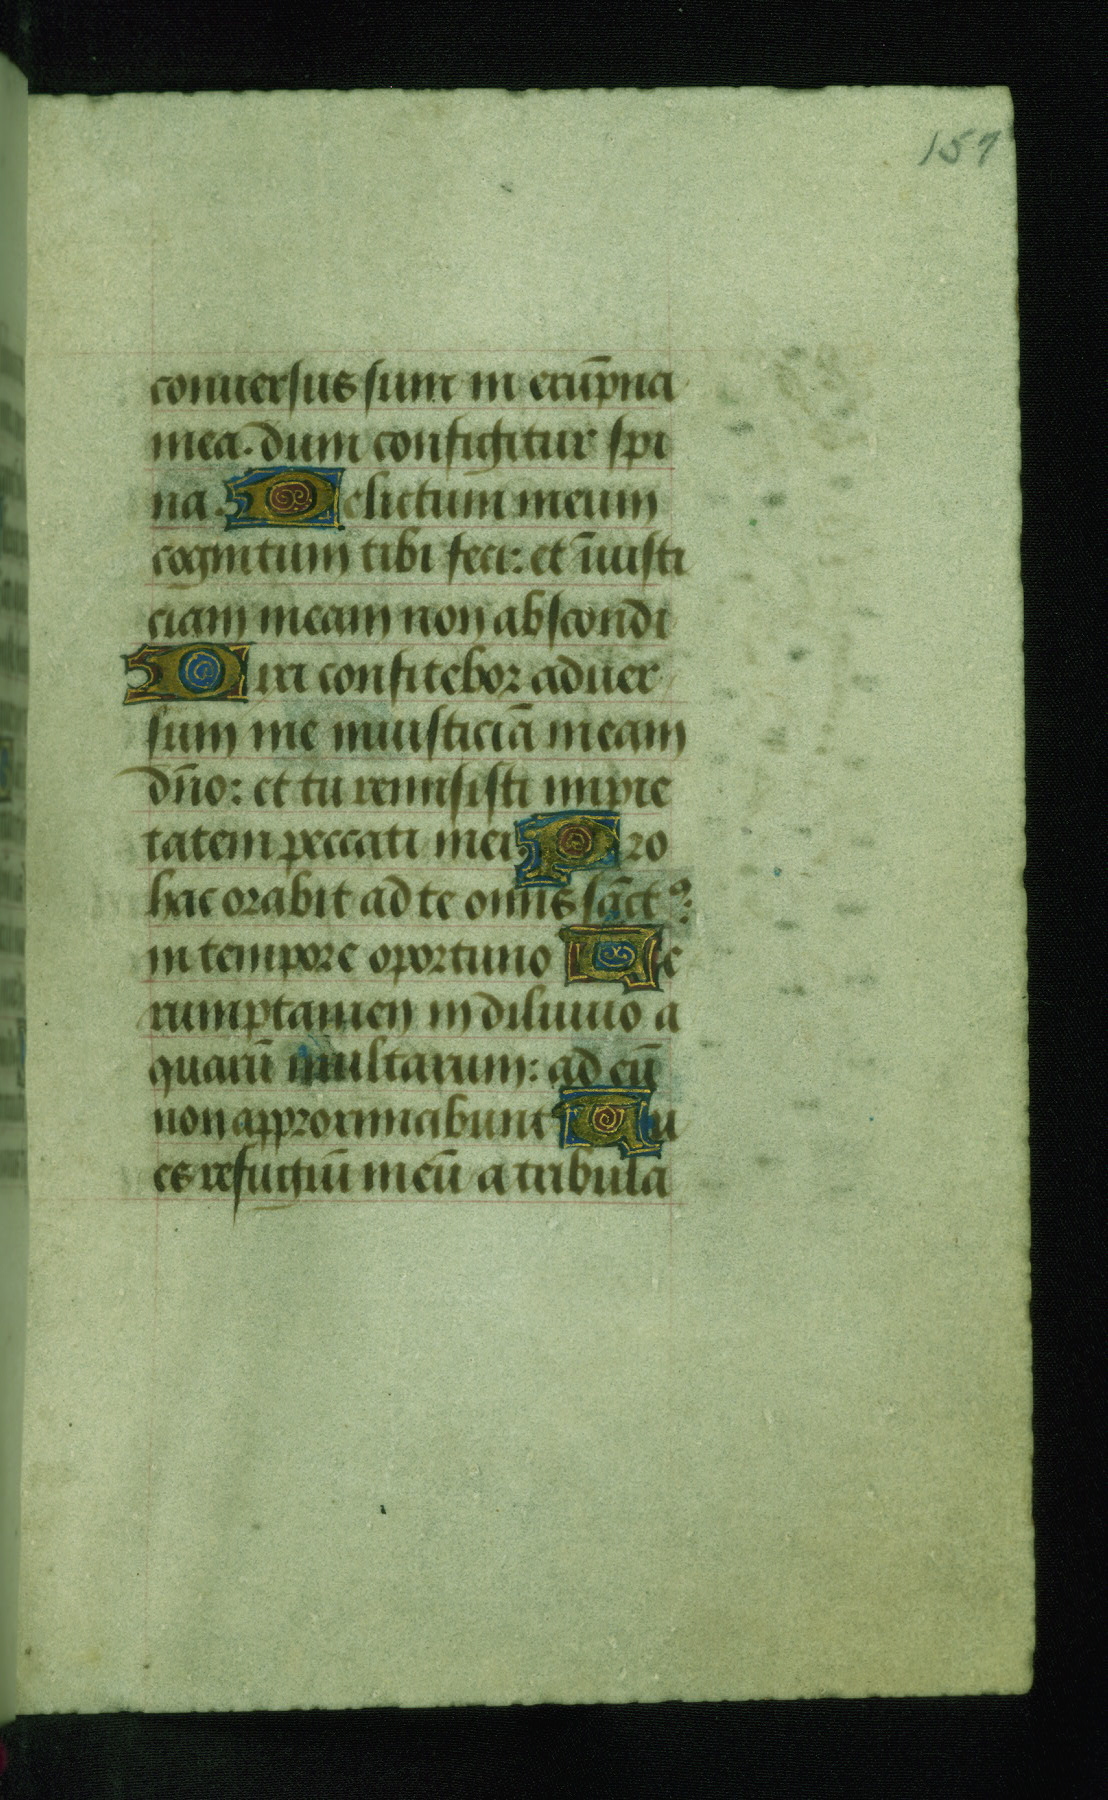 157
conuersus sum in erūpna
mea. dum configitur spi
na. Delictum meum
cognitum tibi feci: et īiusti
ciam meam non abscondi
Dixi confitebor aduer
sum me iniusticiā meam
dn̄o: et tu remisisti impie
tatem peccati mei Pro
hac orabit ad te omnis sāctꝰ:
in tempore oportuno Ue
rumptamen in diluuio a
quarū multarum: ad eū
non approximabunt Tu
es refugiū meū a tribula